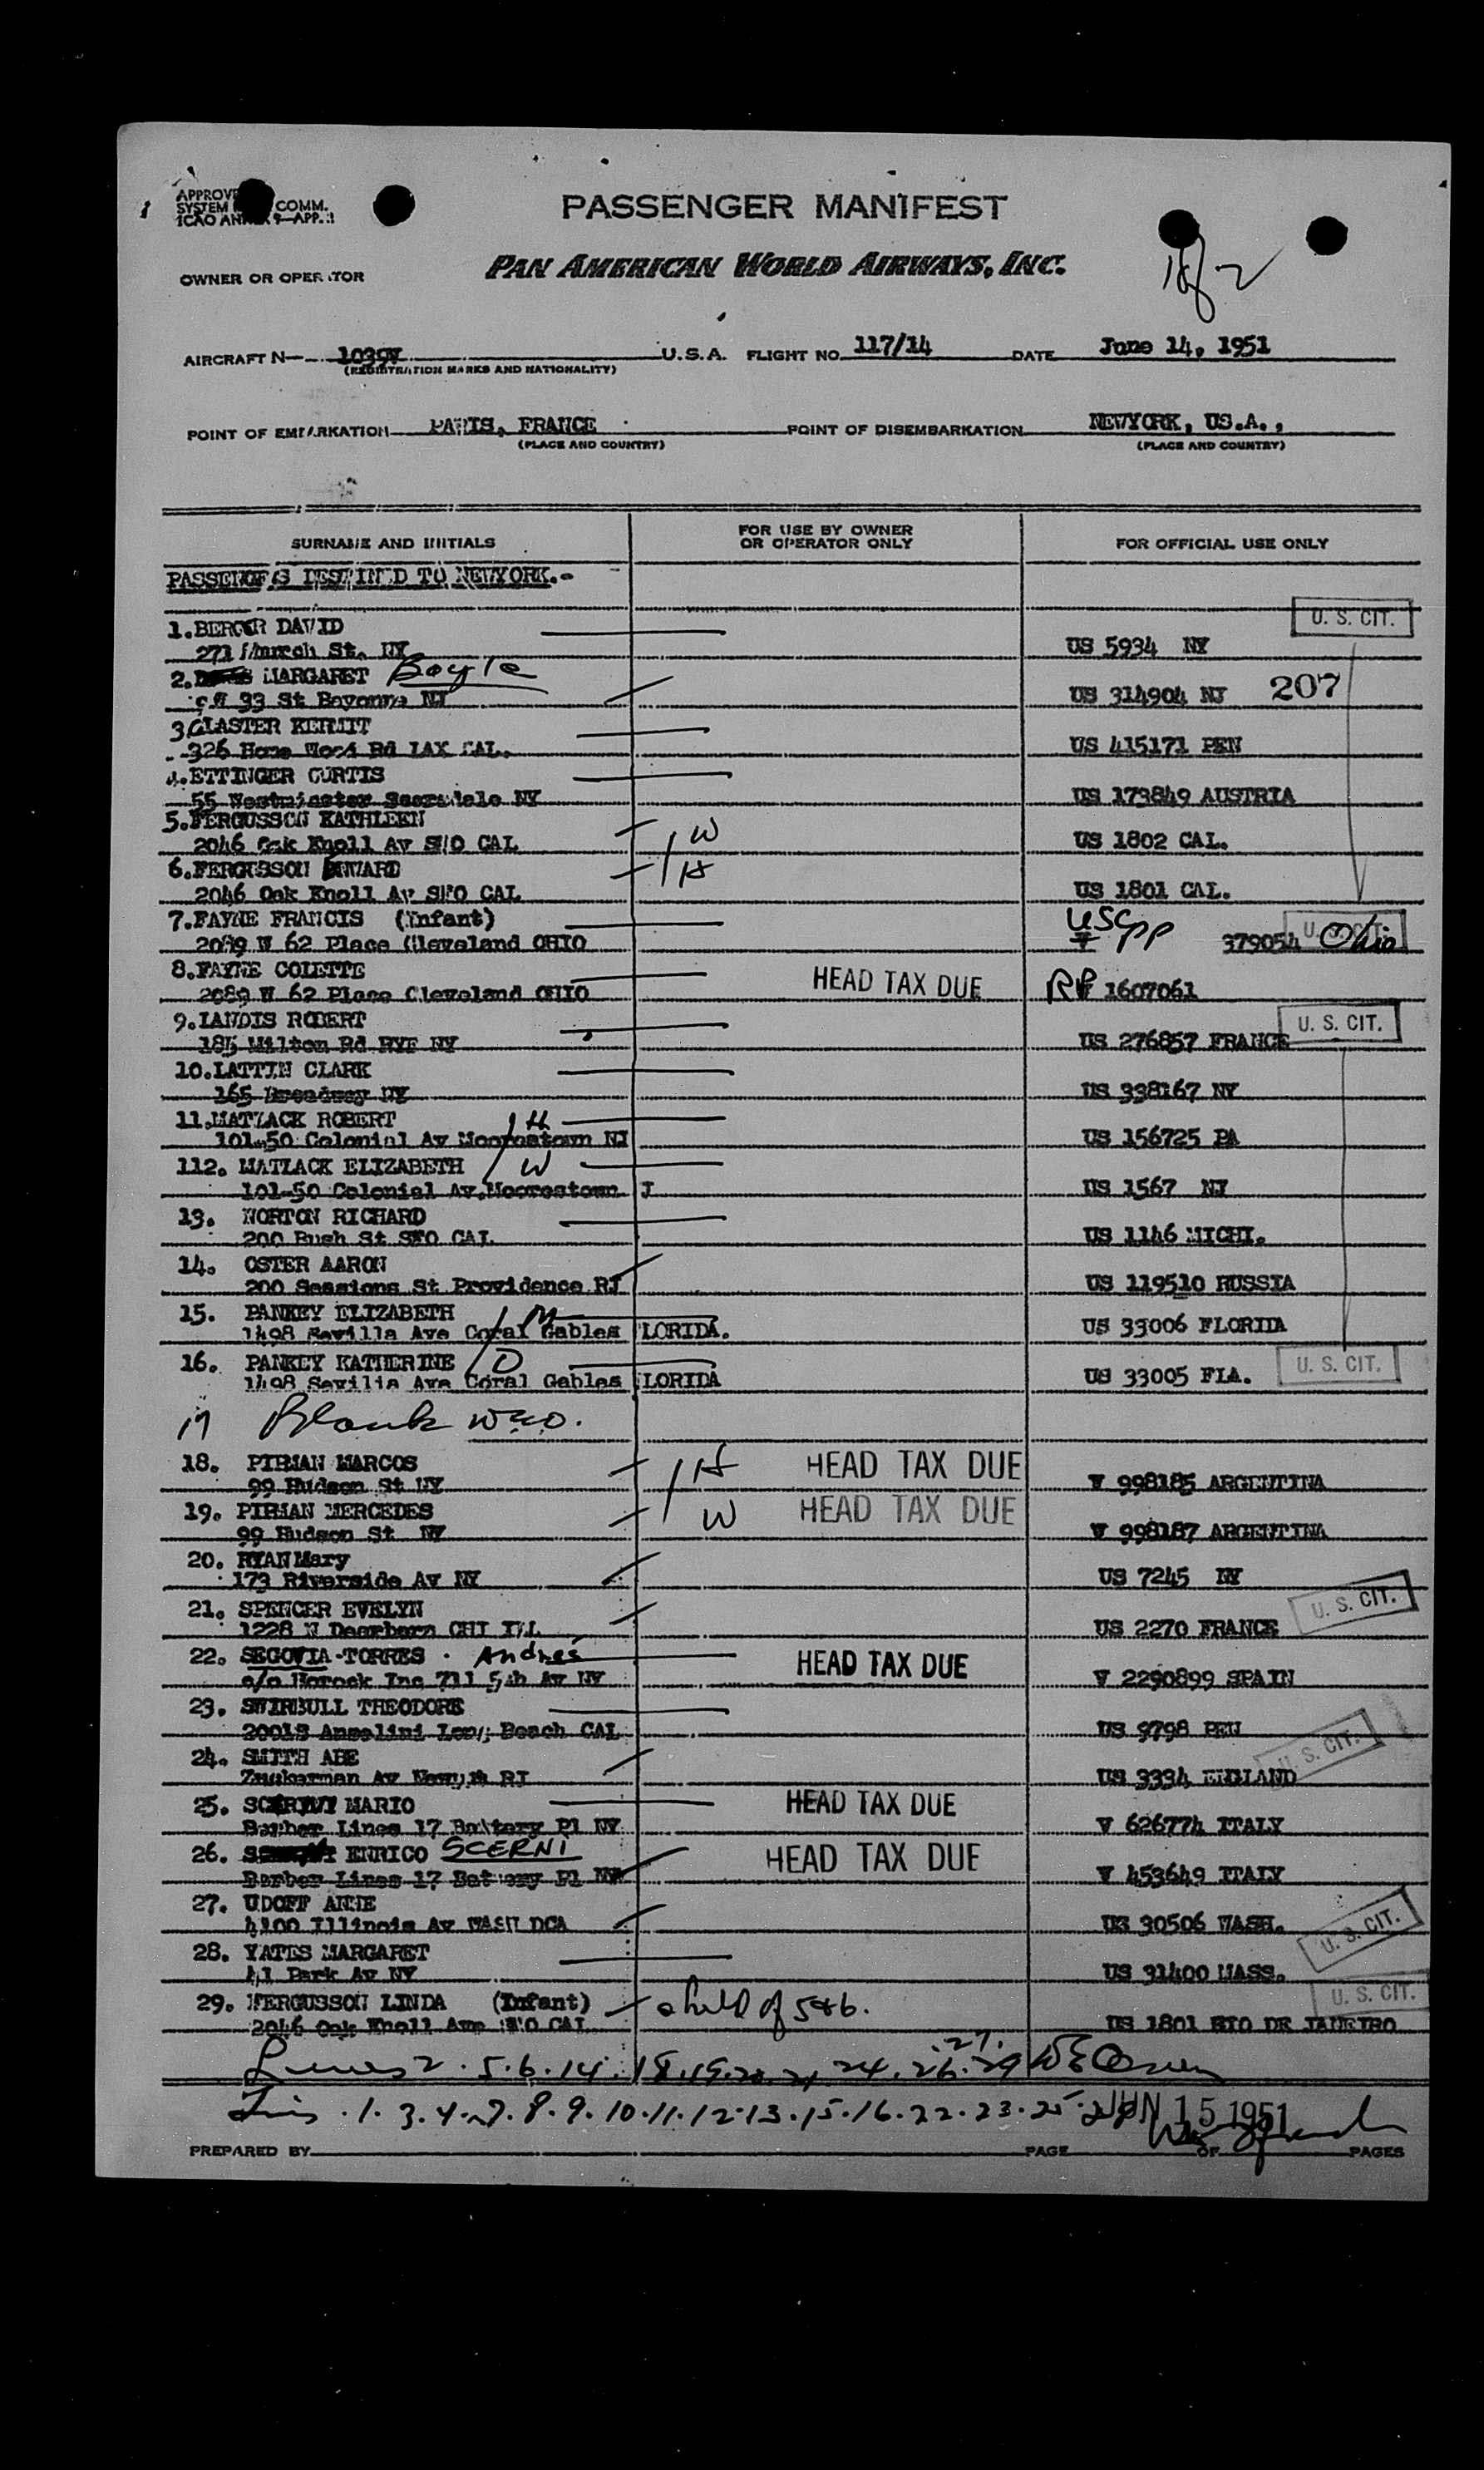 PASSENGER MANIFEST
COMM.
OWNER OR OPERATOR
PAN AMERICAN WORLD AIRWAYS, INC.
AIRCRAFT N— 1039V U.S.A. FLIGHT NO. 117/14 DATE June 14, 1951
(REGISTRATION MARKS AND NATIONALITY)
POINT OF EMBARKATION PARIS, FRANCE POINT OF DISEMBARKATION NEWYORK, US.A.,
(PLACE AND COUNTRY) (PLACE AND COUNTRY)
SURNAME AND INITIALS FOR USE BY OWNER OR OPERATOR ONLY FOR OFFICIAL USE ONLY
PASSENGERS DESTINED TO NEWYORK.-
U. S. CIT.
1. DAVID
271 St. NY US 5934 NY
2. MARGARET Boyle
33 St Bayonne NJ US 314904 NJ 207
3. GLASTER KERMIT
326 Rd LAX CAL. US 415171 PEN
4. ETTINGER CURTIS
55 Westminster Scarsdale NY US 173849 AUSTRIA
5. FERGUSSON KATHLEEN W
2046 Oak Knoll Av CAL US 1802 CAL.
6. FERGUSSON EDWARD H
2046 Oak Knoll Av CAL US 1801 CAL.
7. FAYNE FRANCIS (Infant) USCpp
2089 W 62 Place Cleveland OHIO 379054 Ohio U. S. CIT.
8. FAYNE COLETTE HEAD TAX DUE
2089 W 62 Place Cleveland OHIO RP 1607061
9. LANDIS ROBERT U. S. CIT.
185 Milton Rd RYE NY US 276857 FRANCE
10. LATTIN CLARK
165 Broadway NY US 338167 NY
11. MATLACK ROBERT H
101-50 Colonial Av Moorestown NJ US 156725 PA
112. MATLACK ELIZABETH W
101-50 Colonial Av. Moorestown J US 1567 NJ
13. NORTON RICHARD
200 Bush St SFO CAL US 1146 MICHI.
14. OSTER AARON
200 Sessions St Providence RI US 119510 RUSSIA
15. PANKEY ELIZABETH M
1498 Sevilla Ave Coral Gables LORIDA. US 33006 FLORIDA
16. PANKEY KATHERINE D U. S. CIT.
1498 Sevilla Ave Coral Gables LORIDA US 33005 FLA.
17 Blank
18. PIRMAN MARCOS H HEAD TAX DUE
99 Hudson St NY V 998185 ARGENTINA
19. PIRMAN MERCEDES W HEAD TAX DUE
99 Hudson St NY V 998187 ARGENTINA
20. RYAN Mary
173 Riverside Av NY US 7245 NY
21. SPENCER EVELYN U. S. CIT.
1228 N Dearborn CHI ILL US 2270 FRANCE
22. SEGOVIA-TORRES. Andrés HEAD TAX DUE
c/o Inc 711 5th Av NY V 2290899 SPAIN
23. SWIRBULL THEODORE
Long Beach CAL US 9798 PEN
24. SMITH ABE U. S. CIT.
Zuckerman Av RI US 3334 ENGLAND
25. MARIO HEAD TAX DUE
Barber Lines 17 Battery Pl NY V 626774 ITALY
26. ENRICO SCERNI HEAD TAX DUE
Barber Lines 17 Battery Pl NY V 453649 ITALY
27. UDOFF ANNE
4100 Illinois Av WASH DCA US 30506 WASH. U. S. CIT.
28. YATES MARGARET
41 Park Av NY US 31400 MASS.
29. FERGUSSON LINDA (Infant) child of 5&6. U. S. CIT.
2046 Oak Knoll Ave CAL US 1801 RIO DE JANEIRO
Lines 2. 5. 6. 14. 18. 19. 20. 21. 24. 26. 27. 29
1. 3. 4. 7. 8. 9. 10. 11. 12. 13. 15. 16. 22. 23. 25. JUN 15 1951
PREPARED BY PAGE OF PAGES